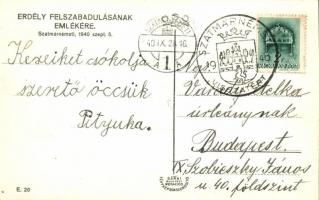 ERDÉLY FELSZABADULÁSÁNAK
EMLÉKÉRE.
Szatmárnémeti, 1940 szept. 5.
Kezeiket csókolja
szerető öccsük
Pityuka.
SZATMÁRNÉMETI
VISSZATÉRT
940.IX.
1
úrleánynak
Budapest.
IX. Szobieszky János
u. 40. földszint
E. 20